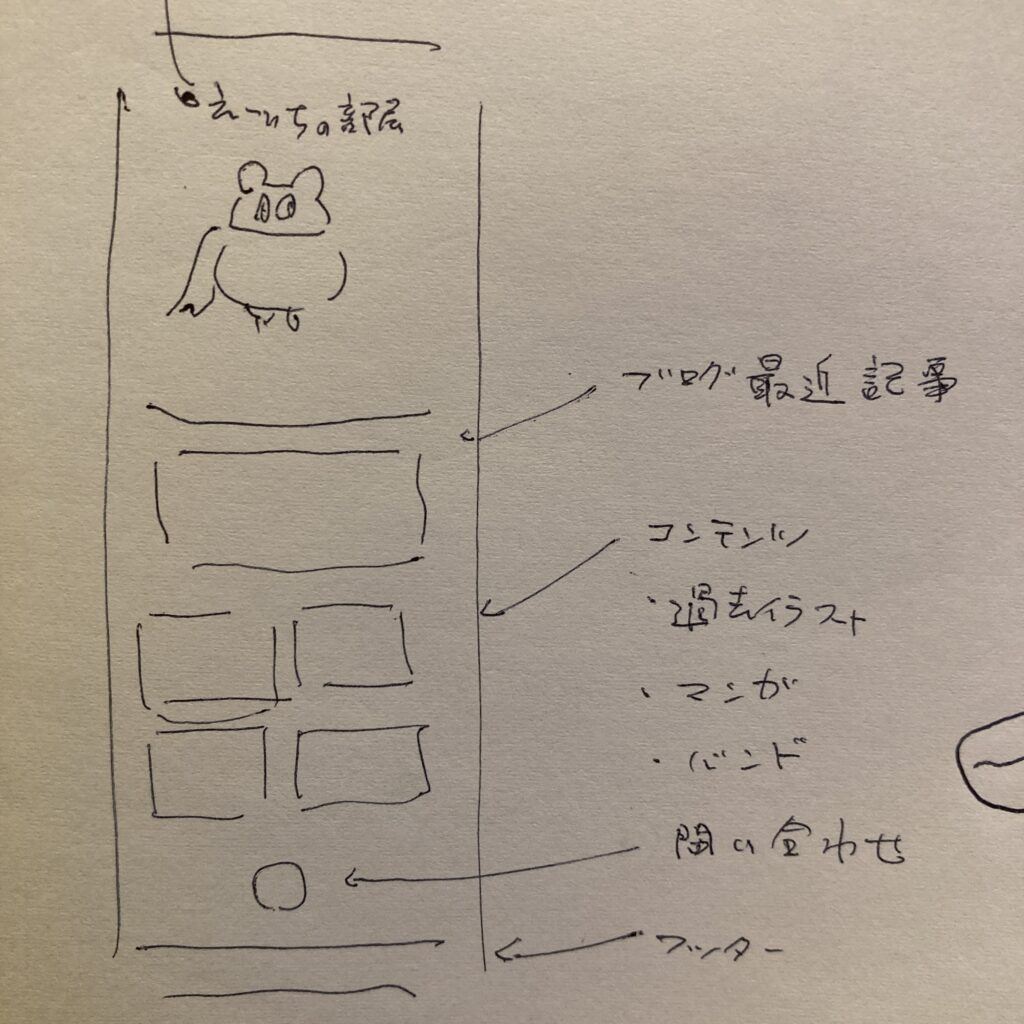 えーいちの部屋
ブログ最近記事
コンテンツ
・過去イラスト
・マンガ
・バンド
問い合わせ
フッター